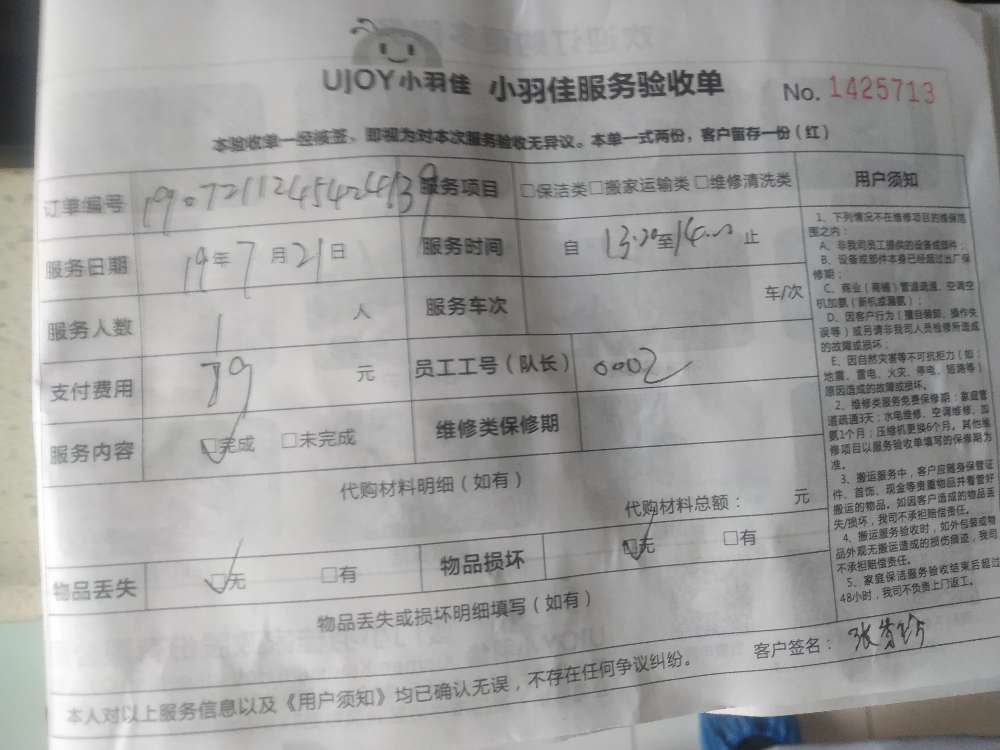 UJOY小羽佳 小羽佳服务验收单 No. 1425713
本验收单一经核签，即视为对本次服务验收无异议。本单一式两份，客户留存一份（红）
订单编号 190721124542439 服务项目 □保洁类□搬家运输类□维修清洗类
服务日期 19年7月21日 服务时间 自 13:20至14:00 止
服务人数 1 人 服务车次 车/次
支付费用 79 元 员工工号（队长） 0002
服务内容 □完成 □未完成 维修类保修期
代购材料明细（如有）
代购材料总额： 元
物品丢失 □无 □有 物品损坏 □无 □有
物品丢失或损坏明细填写（如有）
本人对以上服务信息以及《用户须知》均已确认无误，不存在任何争议纠纷。 客户签名：
用户须知
1、下列情况不在维修项目的维保范
围之内：
A、非我司员工提供的设备或部件；
B、设备或部件本身已经超过出厂保
修期；
C、商业（商铺）管道疏通、空调空
机加氨（新机或漏氨）；
D、因客户行为（擅自装卸、操作失
误等）或另请非我司人员检修所造成
的故障或损坏；
E、因自然灾害等不可抗拒力（如：
地震、雷电、火灾、停电、短路等）
原因造成的故障或损坏。
2、维修类服务免费保修期：家庭管
道疏通3天；水电维修、空调维修、加
氨1个月；压缩机更换6个月。其他维
修项目以服务验收单填写的保修期为
准。
3、搬运服务中，客户应随身保管证
件、首饰、现金等贵重物品并看管好
搬运的物品。如因客户造成的物品丢
失/损坏，我司不承担赔偿责任。
4、搬运服务验收时，如外包装或物
品外观无搬运造成的损伤痕迹，我司
不承担赔偿责任。
5、家庭保洁服务验收结束后超过
48小时，我司不负责上门返工。